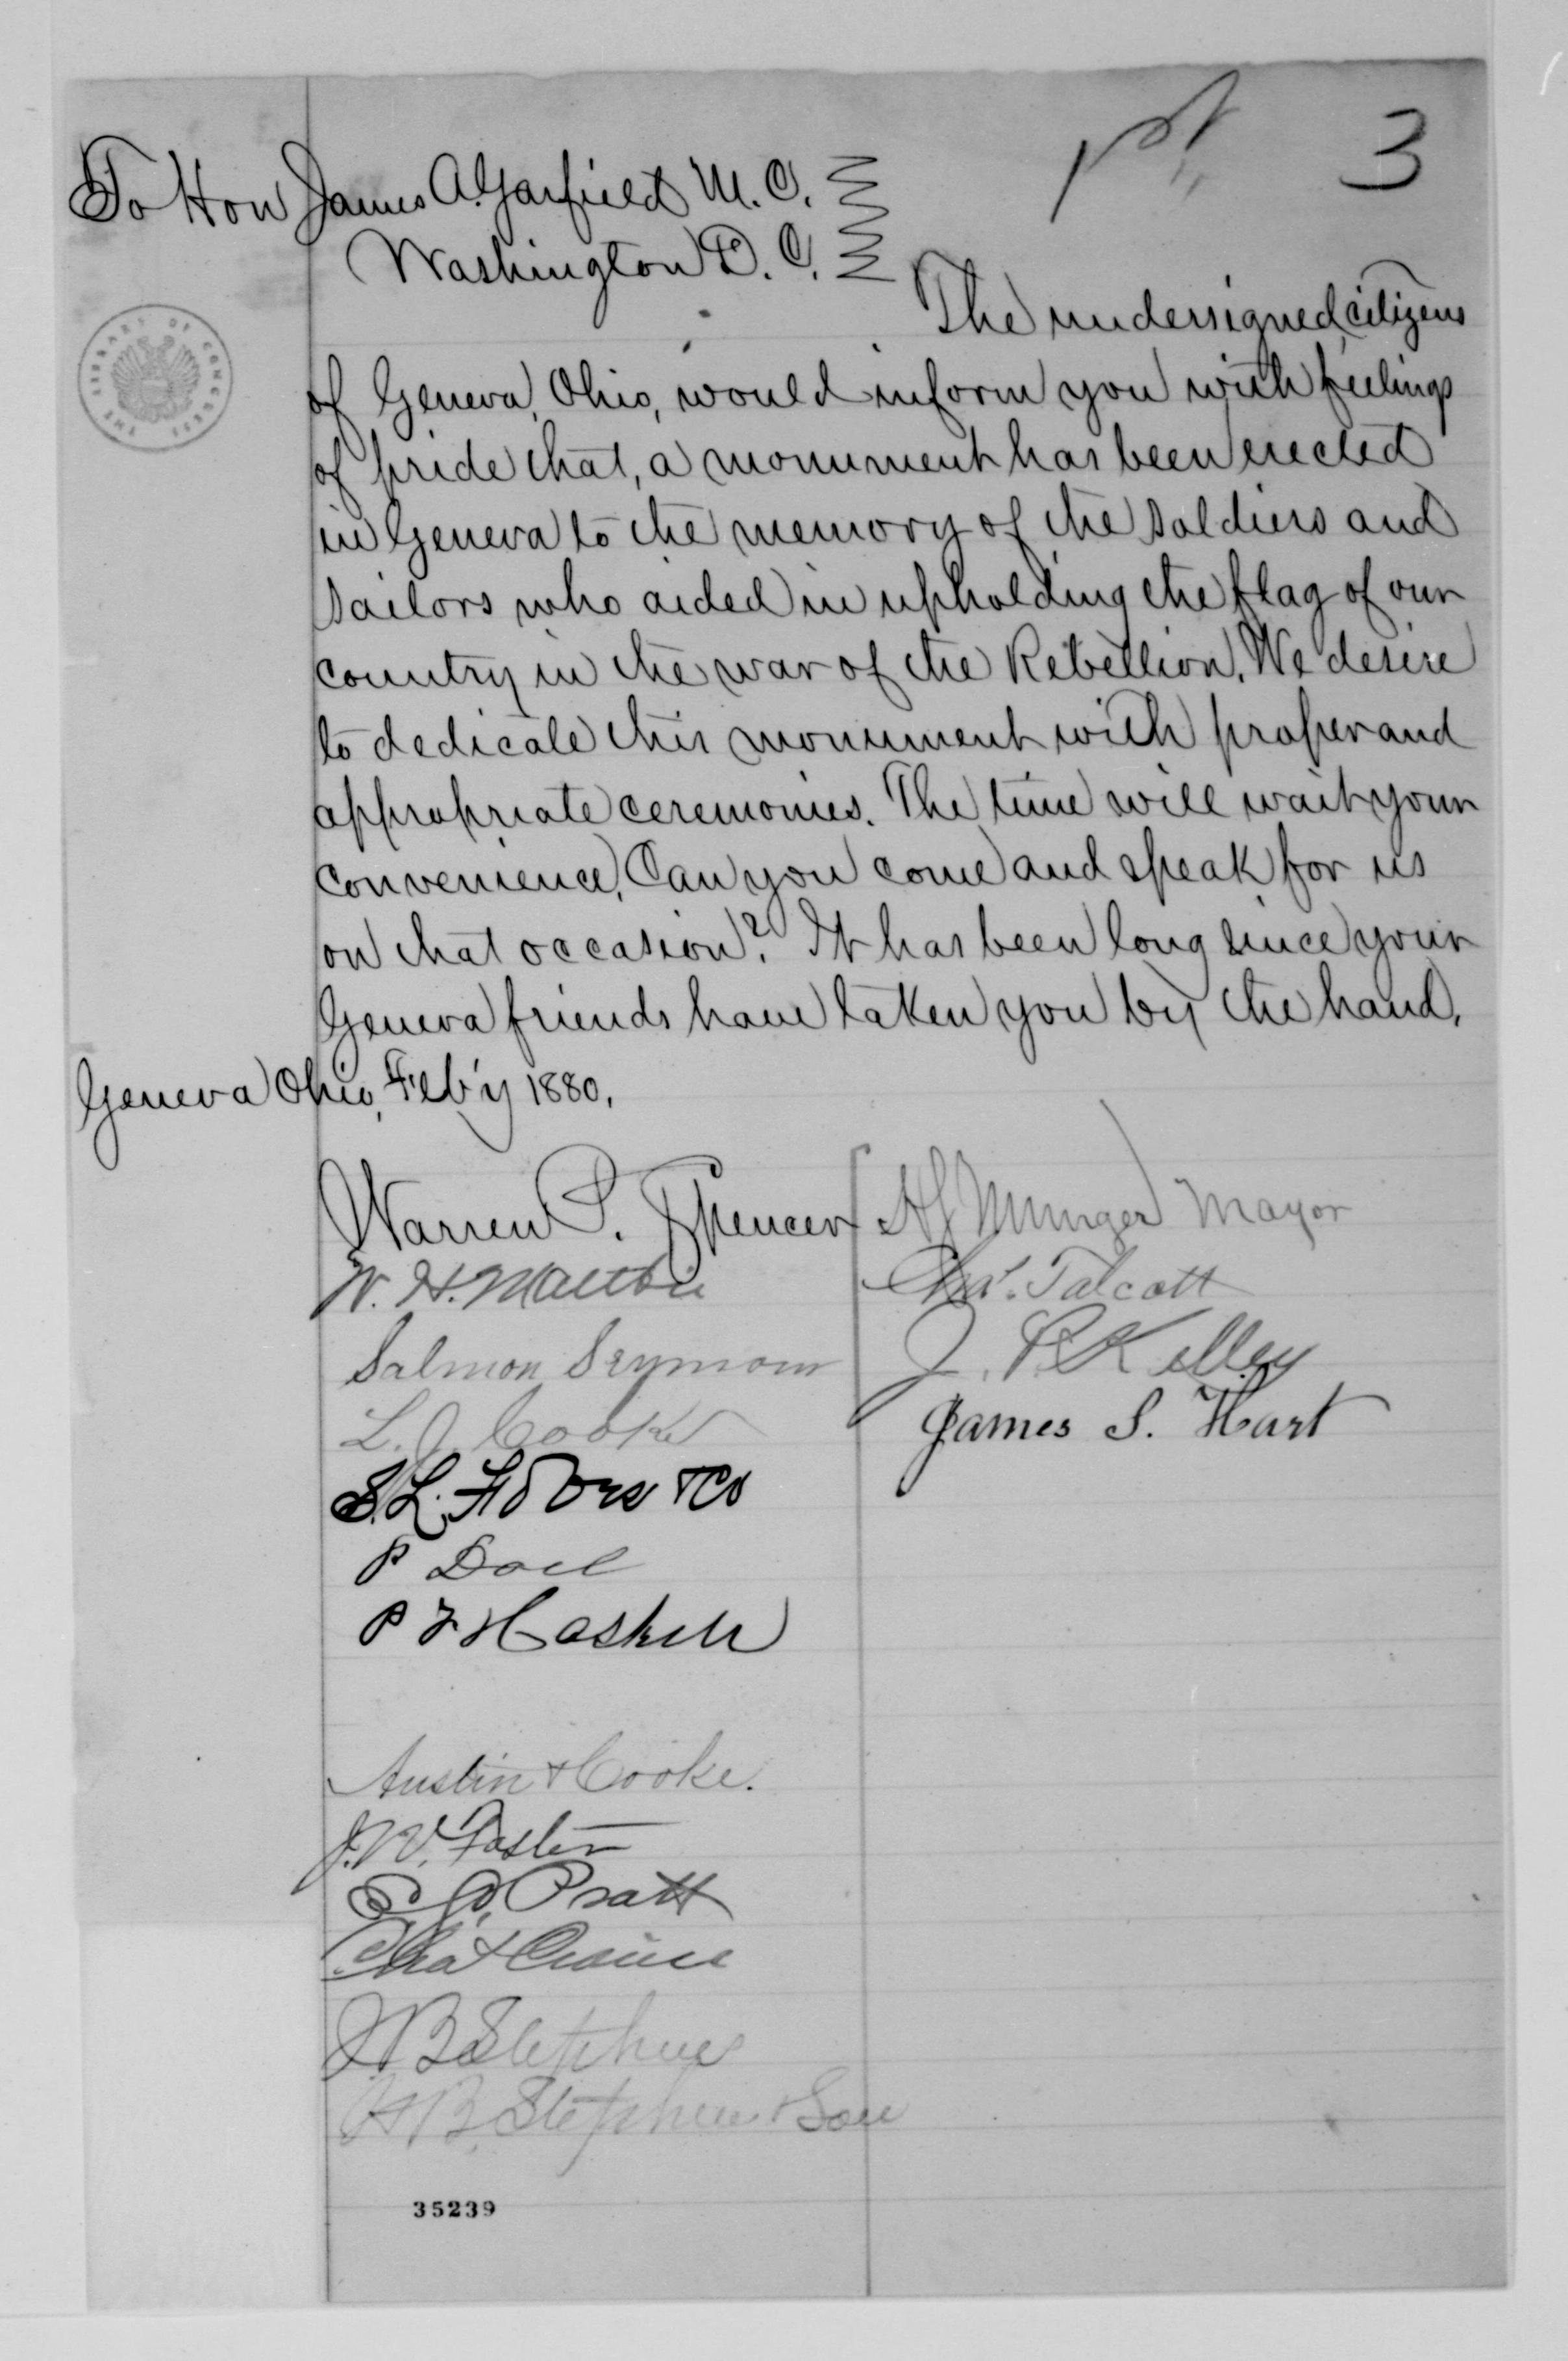 1st 3
To Hon James A. Garfield M. C.
Washington D. C.
The undersigned, citizens
of Geneva, Ohio, would inform you with feelings
of pride that, a monument has been erected
in Geneva to the memory of the soldiers and
sailors who aided in upholding the flag of our
country in the war of the Rebellion. We desire
to dedicate this monument with proper and
appropriate ceremonies. The time will wait your
convenience. Can you come and speak for us
on that occasion? It has been long since your
Geneva friends have taken you by the hand.
Geneva Ohio, Feb'y 1880.
Warren P. Spencer
W. H. Maltbie
Salmon Seymour
L. J. Cooke
& Co
P
P F Haskell
Austin & Cooke.
J. W. Foster
Pratt
J B Stephens
H B. Stephens & Son
Munger Mayor
Chas. Talcott
J. P. Kelley
James S. Hart
THE LIBRARY OF CONGRESS
35239